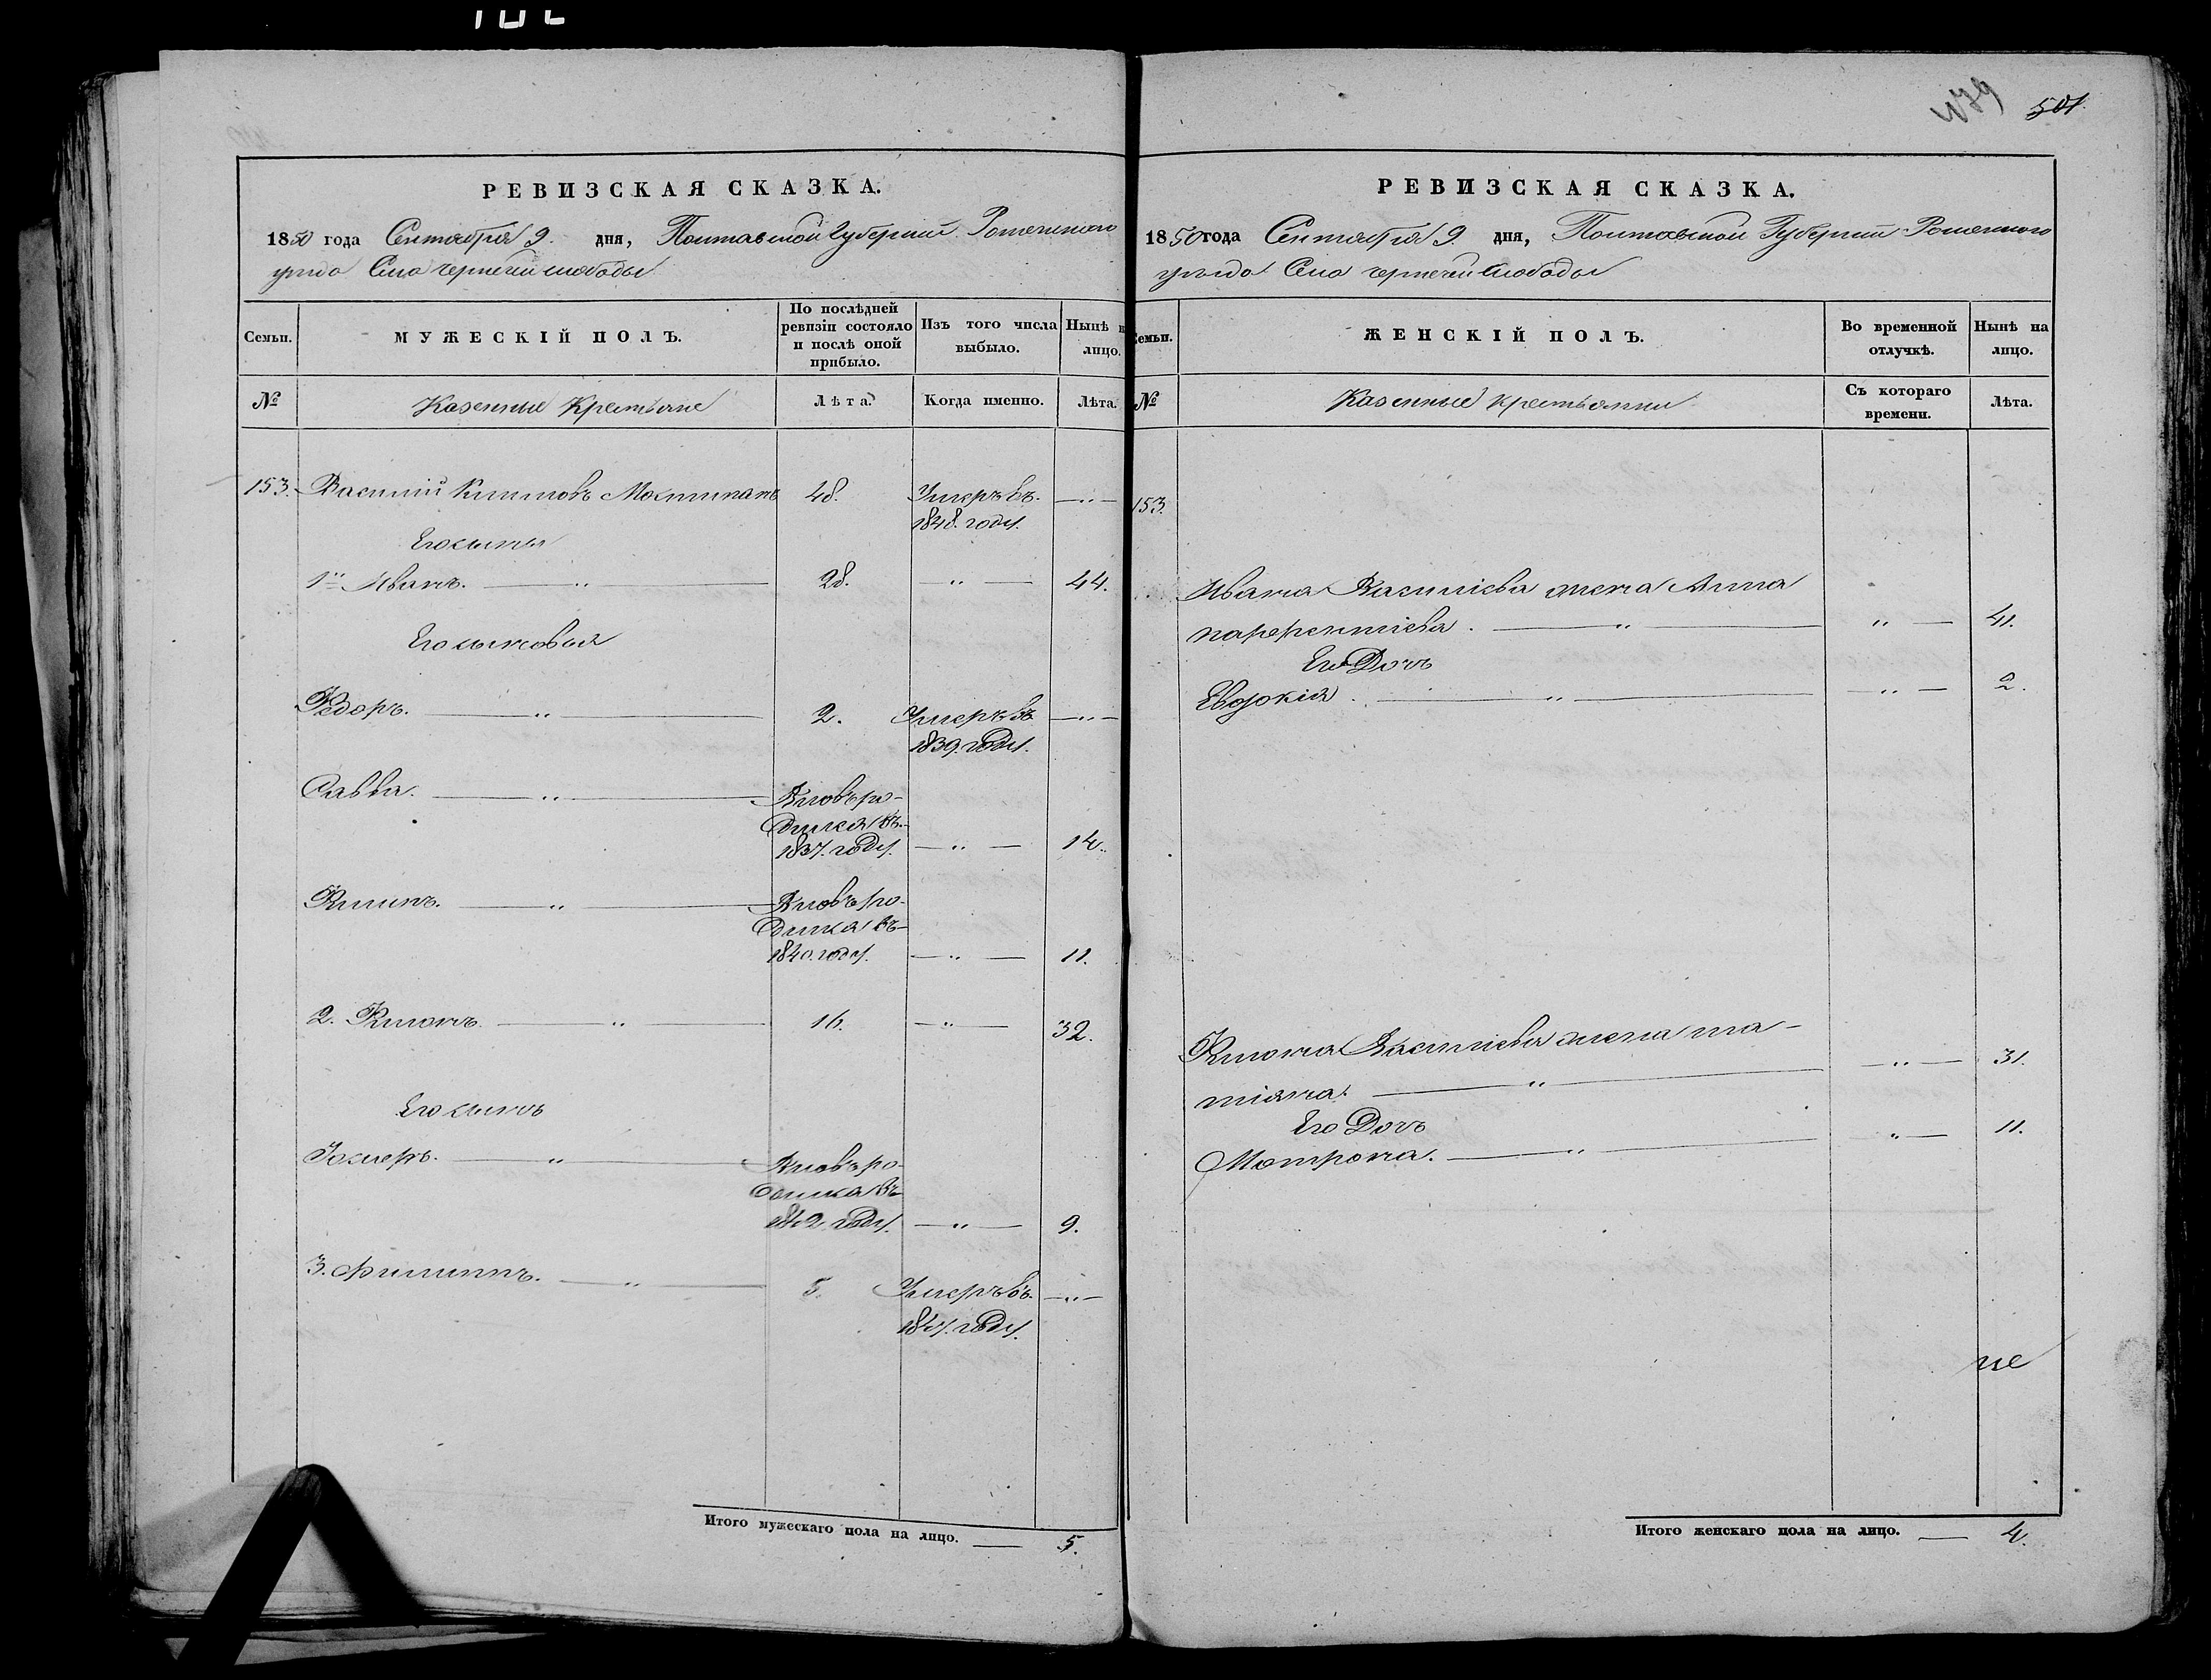 479 501
РЕВИЗСКАЯ СКАЗКА.
1850 года Сентября 9. дня, Полтавской Губернии Роменского
уезда Села чернечей слободы
Семьи.
МУЖЕСКІЙ ПОЛЪ.
По послѣдней ревизіи состояло и послѣ оной прибыло.
Изъ того числа выбыло.
Нынѣ н лицо.
№
Казенные Крестьяне
Лѣта.
Когда именно.
Лѣта.
153. Василий Климовъ 48. Умеръ въ
1848. году.
Его сыны
1й Иванъ. 28. 44.
Его сыновья
Федоръ. 2. Умеръ въ
1839. году.
Савва. Вновь ро-
дился въ
1837. году. 14.
Климъ. Вновь ро-
дился въ
1840. году. 11.
2. 16. 32.
Его сынъ
Вновь ро-
дился въ
1842. году. 9.
3. Филиппъ. 5. Умеръ въ
году.
Итого мужескаго пола на лицо. 5.
РЕВИЗСКАЯ СКАЗКА.
1850 года Сентября 9. дня, Полтавской Губернии Роменского
уезда Села чернечей Слободы
Семьи.
ЖЕНСКІЙ ПОЛЪ.
Во временной отлучкѣ.
Нынѣ на лицо.
№
Казенные крестьянки
Съ котораго времени.
Лѣта.
153.
Ивана Василиева жена Анна
41.
Его Дочь
Евдокия. 2.
Василиева жена та-
31.
тияна.
Его Дочь
Мотрона. 11.
Итого женскаго пола на лицо. 4.